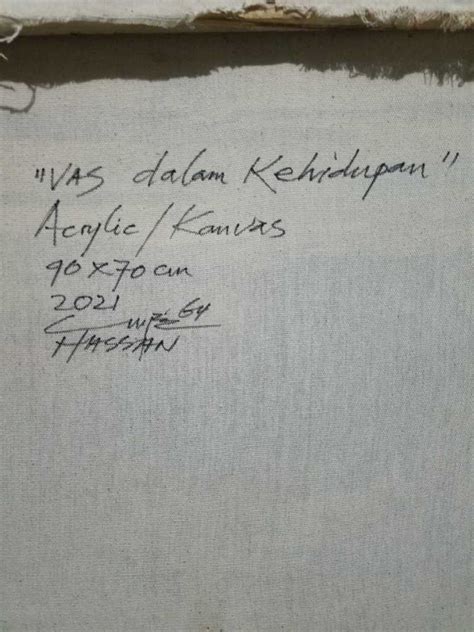 "VAS dalam Kehidupan"
Acrylic/Kanvas
90x70cm
2021
HASSAN